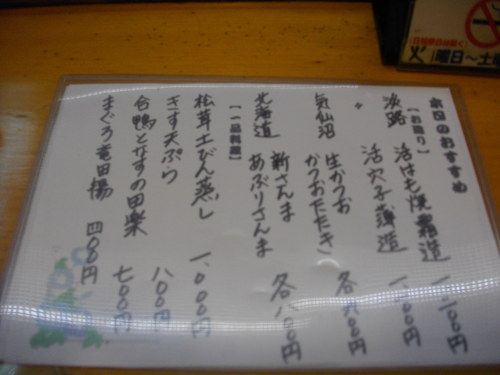 本日のおすすめ
【お造り】
淡路 活はも焼霜造 一、二〇〇円
〃 活穴子薄造 一、二〇〇円
気仙沼 生かつお
かつおたたき 各九〇〇円
北海道 新さんま
あぶりさんま 各八〇〇円
【一品料理】
松茸土びん蒸し 一、〇〇〇円
きす天ぷら 八〇〇円
合鴨となすの田楽 七〇〇円
まぐろ竜田揚 四〇〇円
火曜日～土